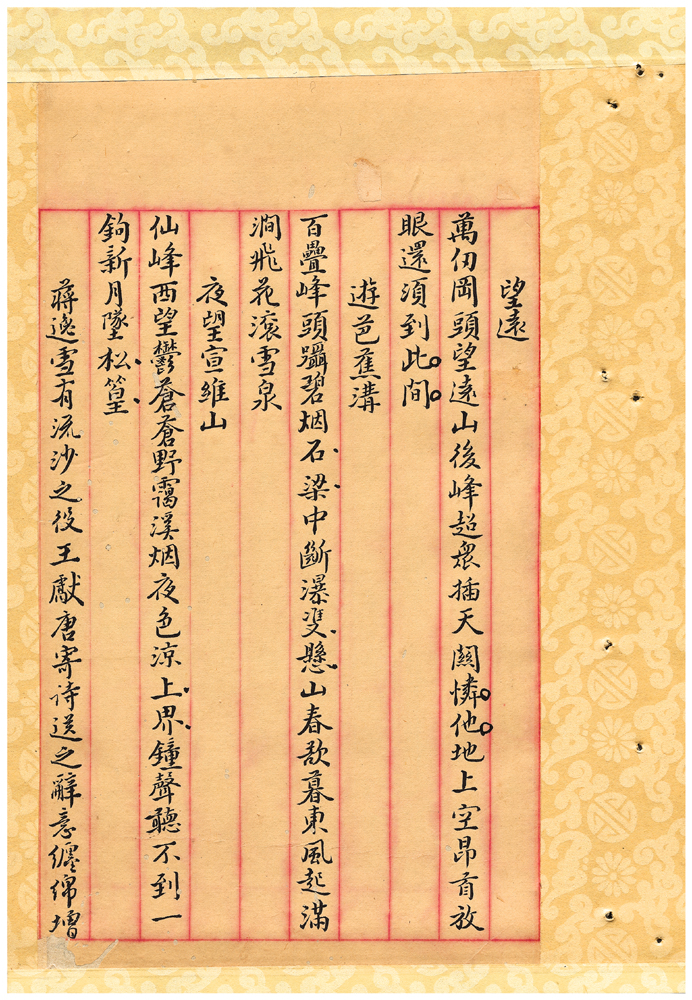 望遠
萬仞岡頭望遠山後峰超衆插天關憐他地上空昂首放
眼還須到此間
遊芭蕉溝
百疊峰頭躡碧烟石梁中斷瀑雙懸山春欲暮東風起滿
澗飛花滾雪泉
夜望宣維山
仙峰西望鬱蒼蒼野靄溪烟夜色涼上界鐘聲聽不到一
鉤新月墜松篁
蔣逸雪有流沙之役王獻唐寄詩送之辭意纏綿增